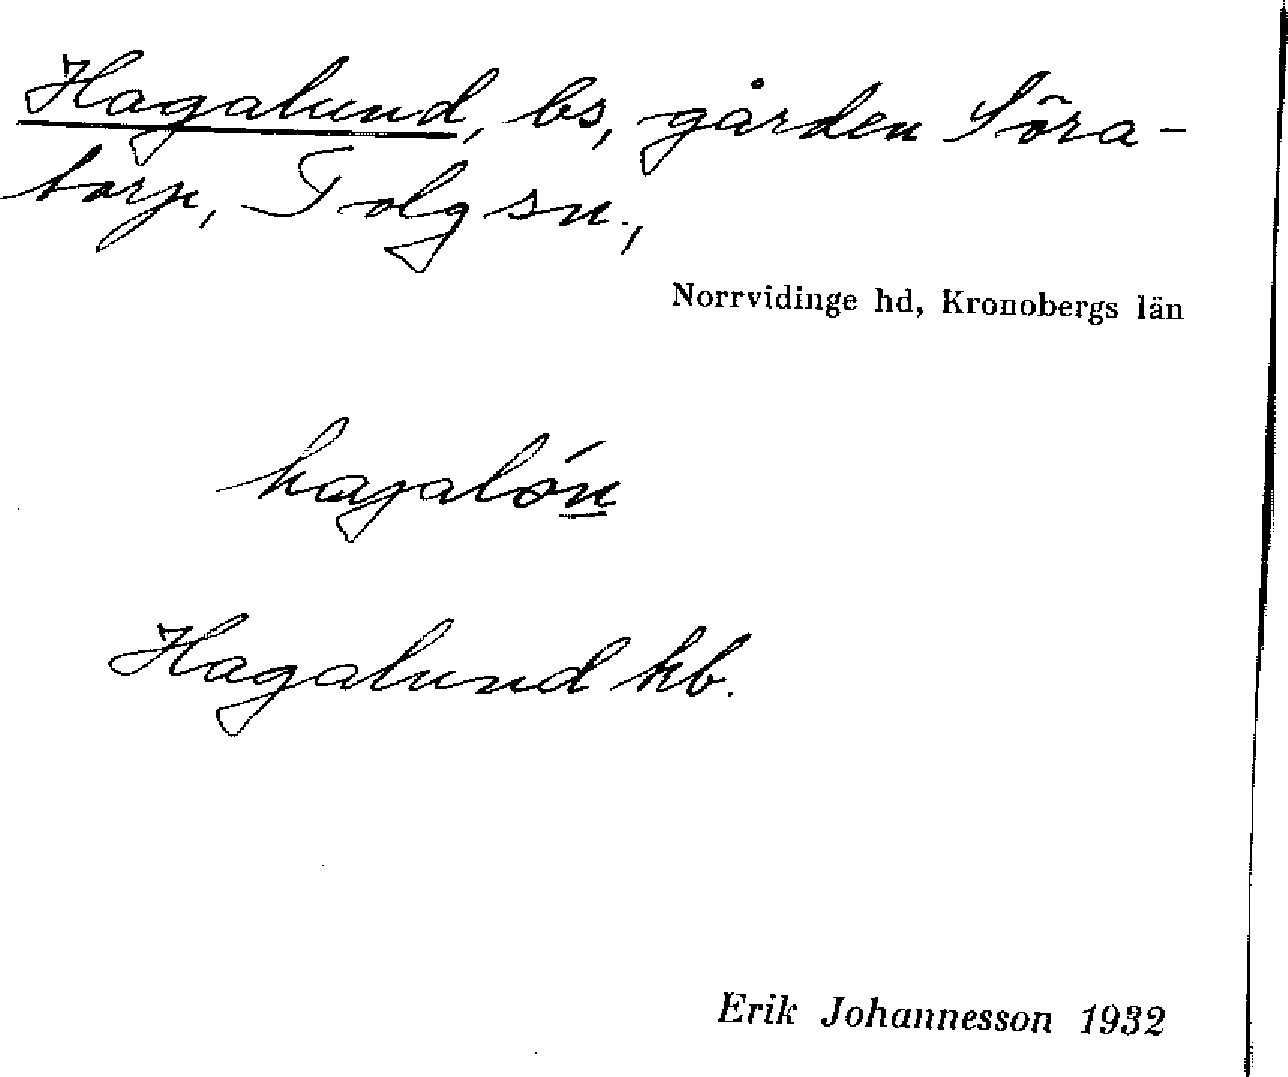 Hagalund, bs, gården Söra-
torp, Tolg sn.,
Norrvidinge hd, Kronobergs län
hagalón
Hagalund kb.
Erik Johannesson 1932